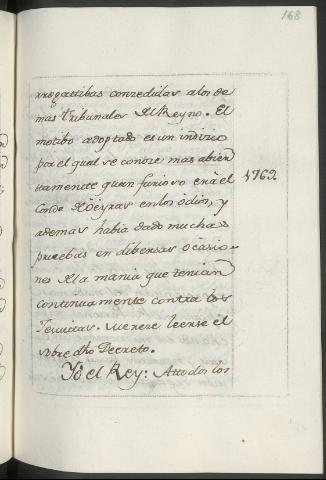 168
rrogattibas conzedidas a los de
mas tribunales del Reyno. El
motibo adoptado es un indizio
por el qual se conoze mas abier
tamente quan furioso era el
Conde de Oeyras en los odios, y
ademas habia dado muchas
pruebas en dibersas ocasio-
nes de la mania que tenian
continuamente contra los
Jesuitas. Mereze leerse el
sobre dho Decreto.
Yo el Rey: A todos los
1762